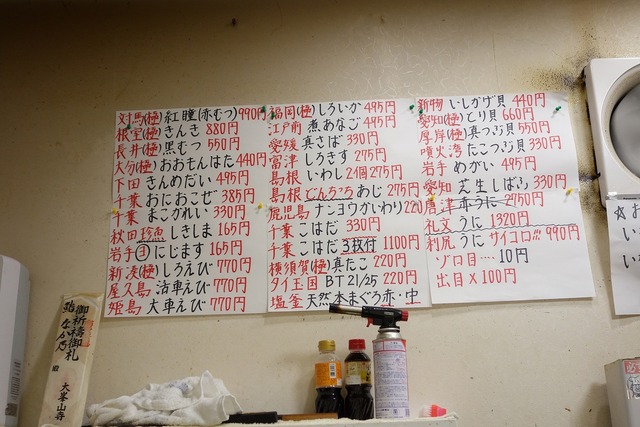 対馬(極)紅瞳(赤むつ)990円
根室(極)きんき 880円
長井(極)黒むつ 550円
大分(極)おおもんはた 440円
下田 きんめだい 495円
千葉 おにおこぜ 385円
千葉 まこがれい 330円
秋田 珍魚 しきしま 165円
岩手 ヨ にじます 165円
新湊(極)しろえび 770円
屋久島 沓車えび 770円
姫島 大車えび 770円
福岡(極)しろいか 495円
江戸前 煮あなご 495円
愛媛 真さば 330円
富津 しろきす 275円
島根 いわし 2個 275円
島根 どんちっち あじ 275円
鹿児島 ナンヨウかいわり 220
千葉 こはだ 330円
千葉 こはだ 3枚付 1100円
横須賀(極)真たこ 220円
タイ王国 BT 21/25 220円
塩釜 天然本まぐろ 赤・中
新物 いしかげ貝 440円
愛知(極)とり貝 660円
厚岸(極)真つぶ貝 550円
噴火湾 たこつぶ貝 330円
岩手 めがい 495円
愛知 芝生しばえび 330円
唐津 赤うに 2750円
礼文 うに 1320円
利尻 うに サイコロ 990円
ゾロ目… 10円
出目 X 100円
御祈祷御札
鮨 なか乃
大峯山寺